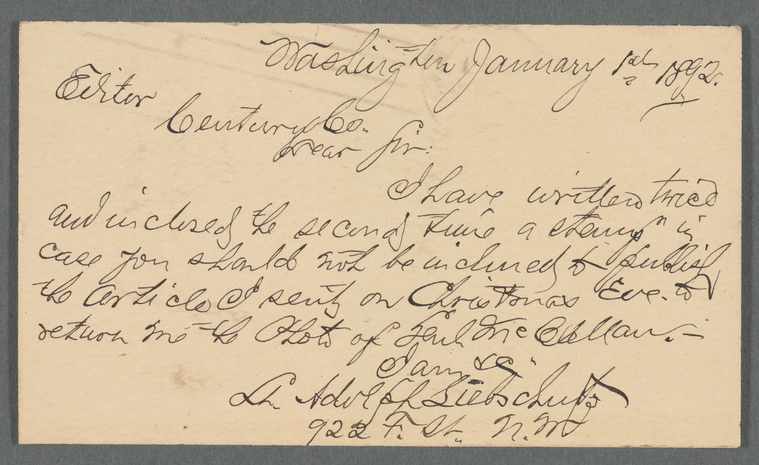 Washington January 1st 1892.
Editor
Century Co.
Dear Sir:
I have written twice
and inclosed the second time a stamp in
case you should not be inclined to publish
the article I sent on Christmas Eve. to
return me the Photo of Genl McClellan.—
I am &c
Adolph
922 F. St. N.W